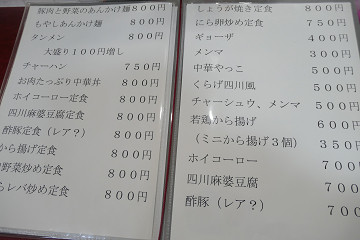 豚肉と野菜のあんかけ麺８００円
もやしあんかけ麺 ８００円
タンメン ８００円
大盛り１００円増し
チャーハン ７５０円
お肉たっぷり中華丼 ８００円
ホイコーロー定食 ８００円
四川麻婆豆腐定食 ８００円
酢豚定食（レア？） ８００円
から揚げ定食 ８００円
野菜炒め定食 ８００円
らレバ炒め定食 ８００円
しょうが焼き定食 ８００円
にら卵炒め定食 ７５０円
ギョーザ ４００円
メンマ ３００円
中華やっこ ５００円
くらげ四川風 ５００円
チャーシュウ、メンマ ５００円
若鶏から揚げ ６００円
（ミニから揚げ３個） ３５０円
ホイコーロー ７００円
四川麻婆豆腐 ７００
酢豚（レア？） ７００